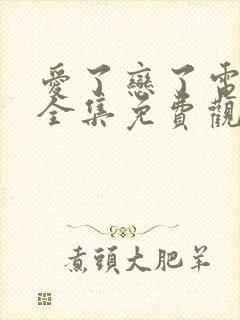 愛了戀了電
全集免費觀
煮頭大肥羊